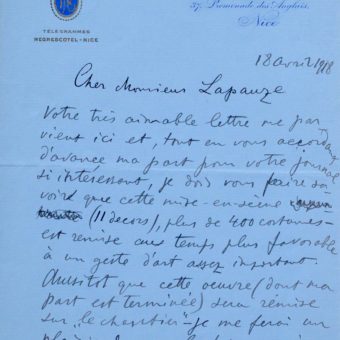 37, Promenade des Anglais,
Nice
TÉLÉGRAMMES
NEGRESCOTEL - NICE
18 avril 1918
Cher Monsieur Lapauze
Votre très aimable lettre me par
vient ici et, tout en vous accordant
d'avance ma part pour votre journal
si intéressant - je dois vous faire sa-
voir que cette mise-en-scène
(11 decors), plus de 400 costumes -
est remise aux temps plus favorable
à un geste d'art assez important.
Aussitot que cette oeuvre (dont ma
part est terminée) sera remise
sur "le chantier" - je me ferai un